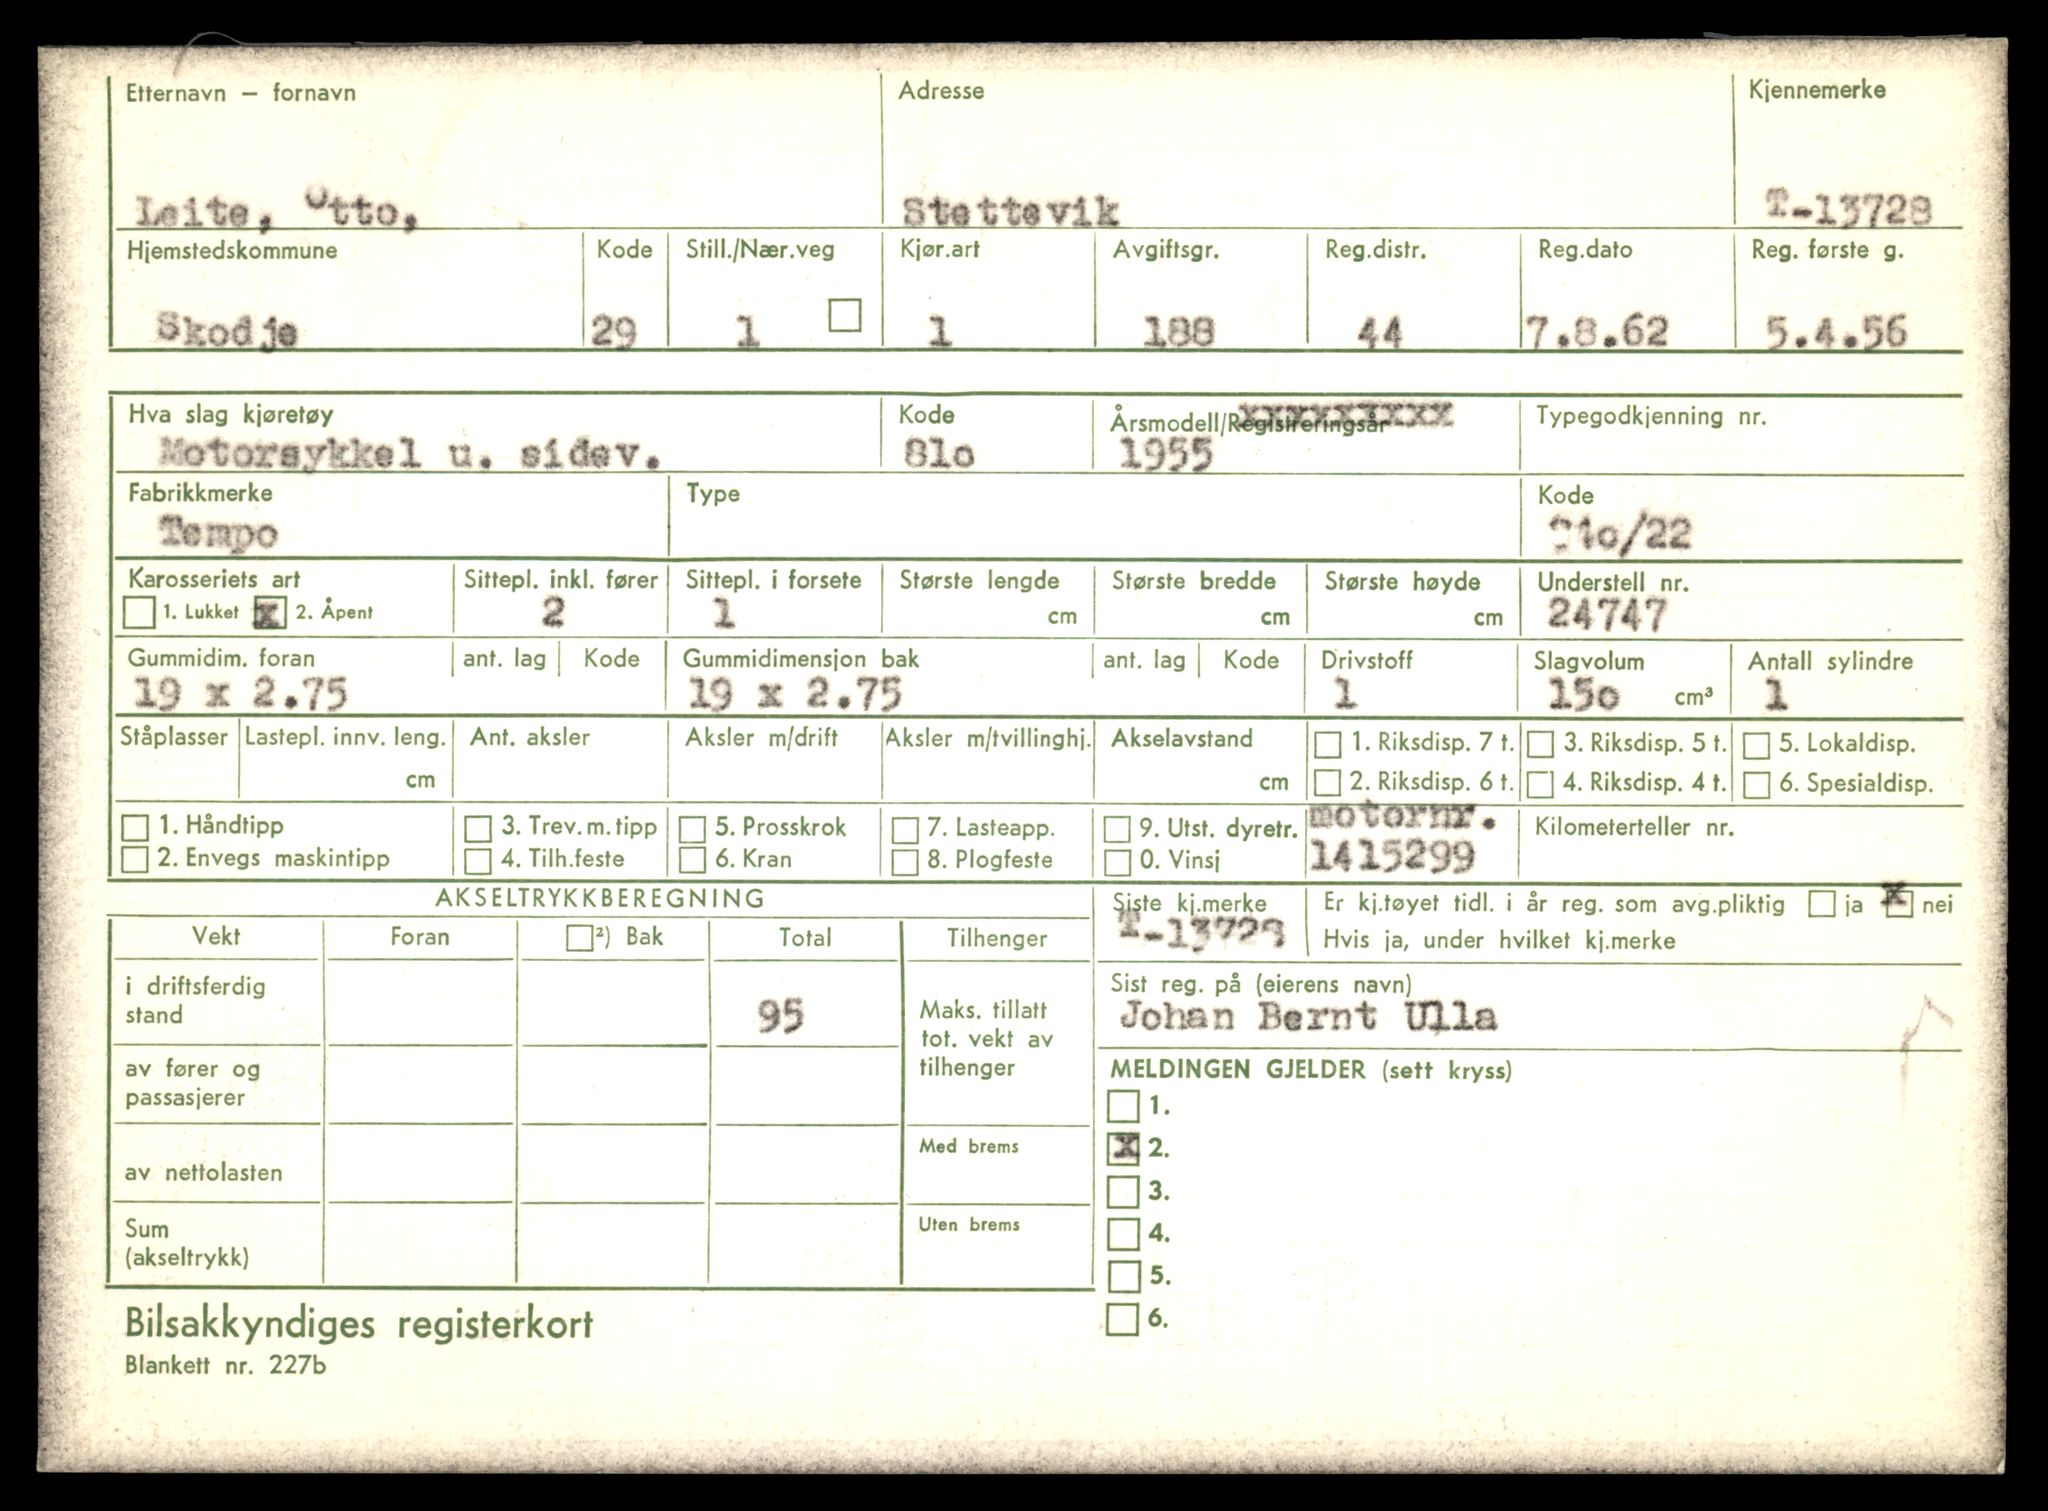 Etternavn — fornavn Adresse Kjennemerke
Leite, Otto, Stettevik T-13728
Hjemstedskommune Kode Still./Nær.veg Kjør.art Avgiftsgr. Reg.distr. Reg.dato Reg. første g.
Skodje 29 1 1 188 44 7.8.62 5.4.56
Hva slag kjøretøy Kode Årsmodell/Registreringsår Typegodkjenning nr.
Motorsykkel u. sidev. 81o 1955
Fabrikkmerke Type Kode
Tempo /22
Karosseriets art Sittepl. inkl. fører Sittepl. i forsete Største lengde Største bredde Største høyde Understell nr.
1. Lukket x 2. Åpent 2 1 cm cm cm 24747
Gummidim. foran ant. lag Kode Gummidimensjon bak ant. lag Kode Drivstoff Slagvolum Antall sylindre
19 x 2.75 19 x 2.75 1 15o cm³ 1
Ståplasser Lastepl. innv. leng. Ant. aksler Aksler m/drift Aksler m/tvillinghj. Akselavstand 1. Riksdisp. 7 t. 3. Riksdisp. 5 t. 5. Lokaldisp.
cm cm 2. Riksdisp. 6 t. 4. Riksdisp. 4 t. 6. Spesialdisp.
1. Håndtipp 3. Trev.m.tipp 5. Prosskrok 7. Lasteapp. 9. Utst. dyretr. motornr. Kilometerteller nr.
2. Envegs maskintipp 4. Tilh.feste 6. Kran 8. Plogfeste 0. Vinsj 1415299
AKSELTRYKKBEREGNING Siste kj.merke Er kj.tøyet tidl. i år reg. som avg.pliktig ja x nei
Vekt Foran ²) Bak Total Tilhenger T-13728 Hvis ja, under hvilket kj.merke
i driftsferdig stand 95 Maks. tillatt tot. vekt av tilhenger
Sist reg. på (eierens navn)
Johan Bernt Ulla
av fører og passasjerer
MELDINGEN GJELDER (sett kryss)
1.
av nettolasten Med brems x 2.
3.
Sum (akseltrykk) Uten brems 4.
5.
6.
Bilsakkyndiges registerkort
Blankett nr. 227b